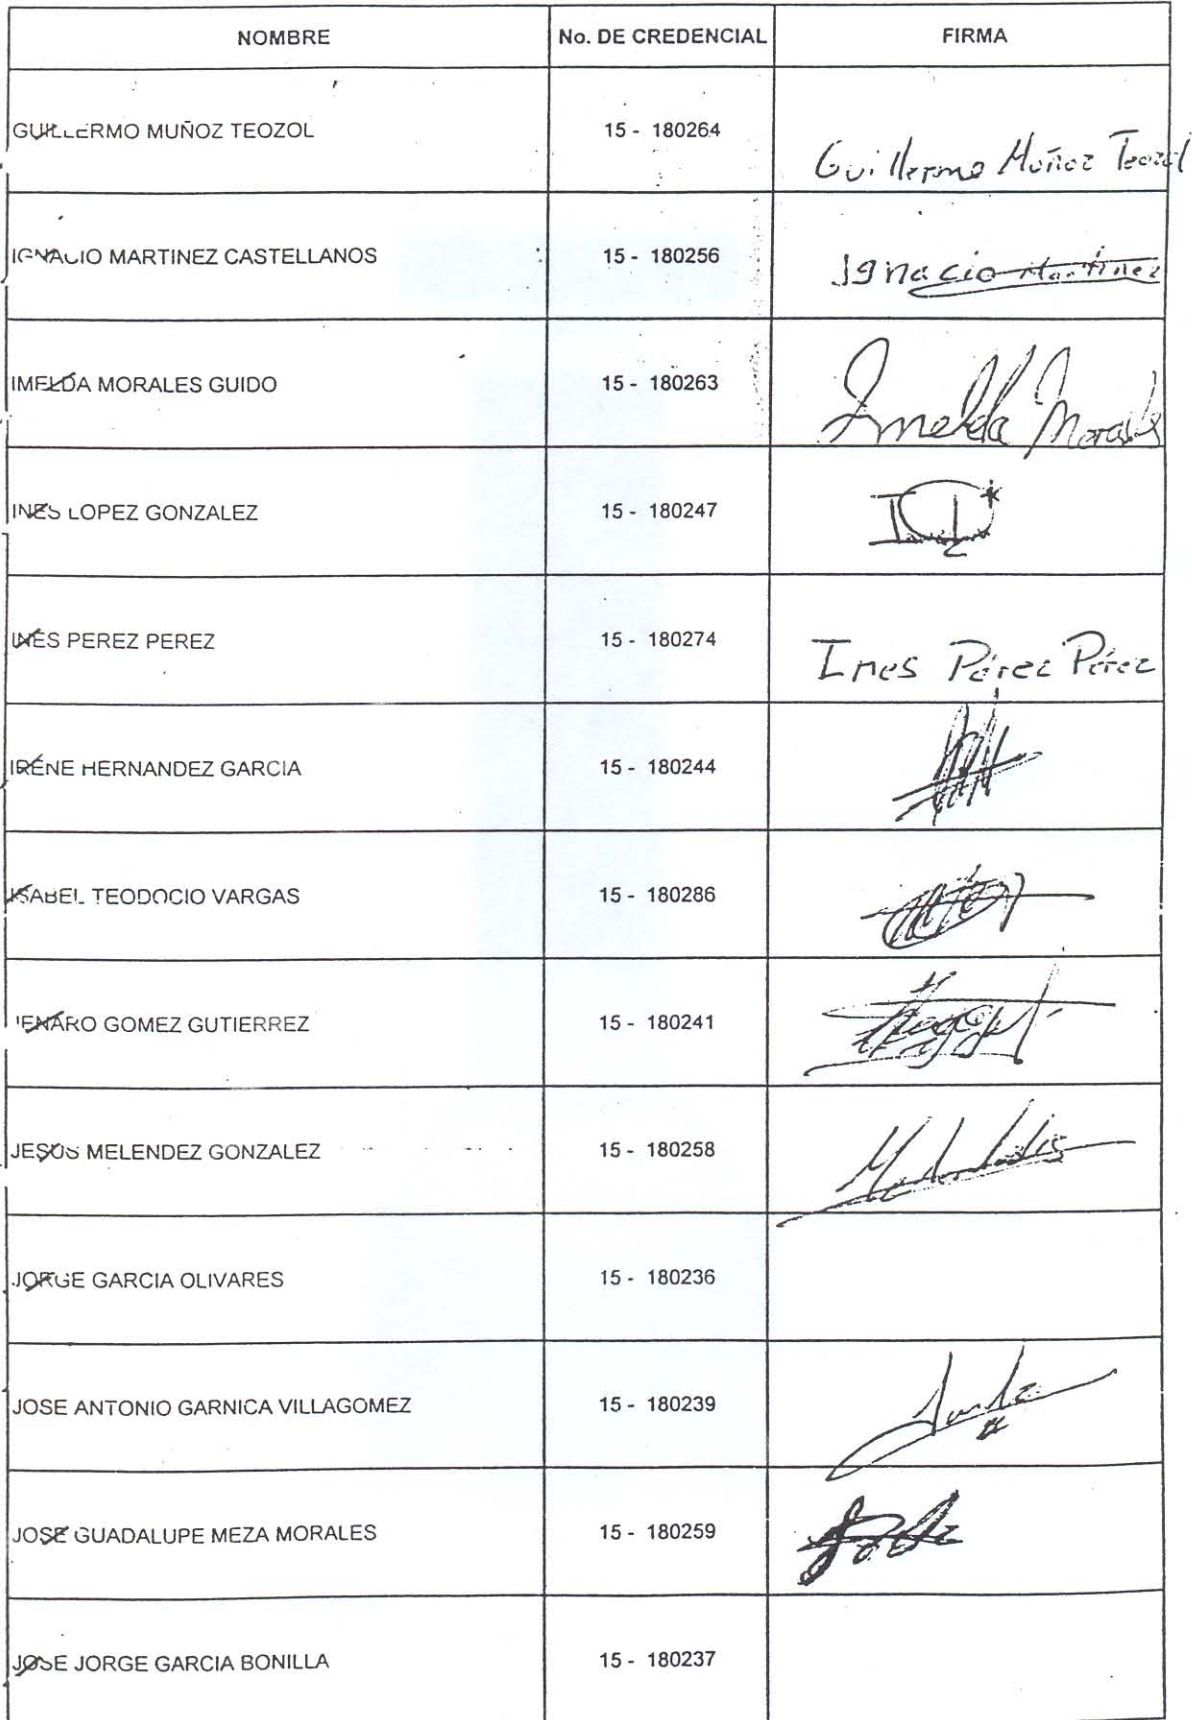 NOMBRE No. DE CREDENCIAL FIRMA
GUILLERMO MUÑOZ TEOZOL 15 - 180264 Guillermo Muñoz Teozol
IGNACIO MARTINEZ CASTELLANOS 15 - 180256 Ignacio Martinez
IMELDA MORALES GUIDO 15 - 180263 Imelda Morales
INES LOPEZ GONZALEZ 15 - 180247
INES PEREZ PEREZ 15 - 180274 Ines Pérez Pérez
IRENE HERNANDEZ GARCIA 15 - 180244
ISABEL TEODOCIO VARGAS 15 - 180286
JENARO GOMEZ GUTIERREZ 15 - 180241
JESUS MELENDEZ GONZALEZ 15 - 180258
JORGE GARCIA OLIVARES 15 - 180236
JOSE ANTONIO GARNICA VILLAGOMEZ 15 - 180239
JOSE GUADALUPE MEZA MORALES 15 - 180259
JOSE JORGE GARCIA BONILLA 15 - 180237